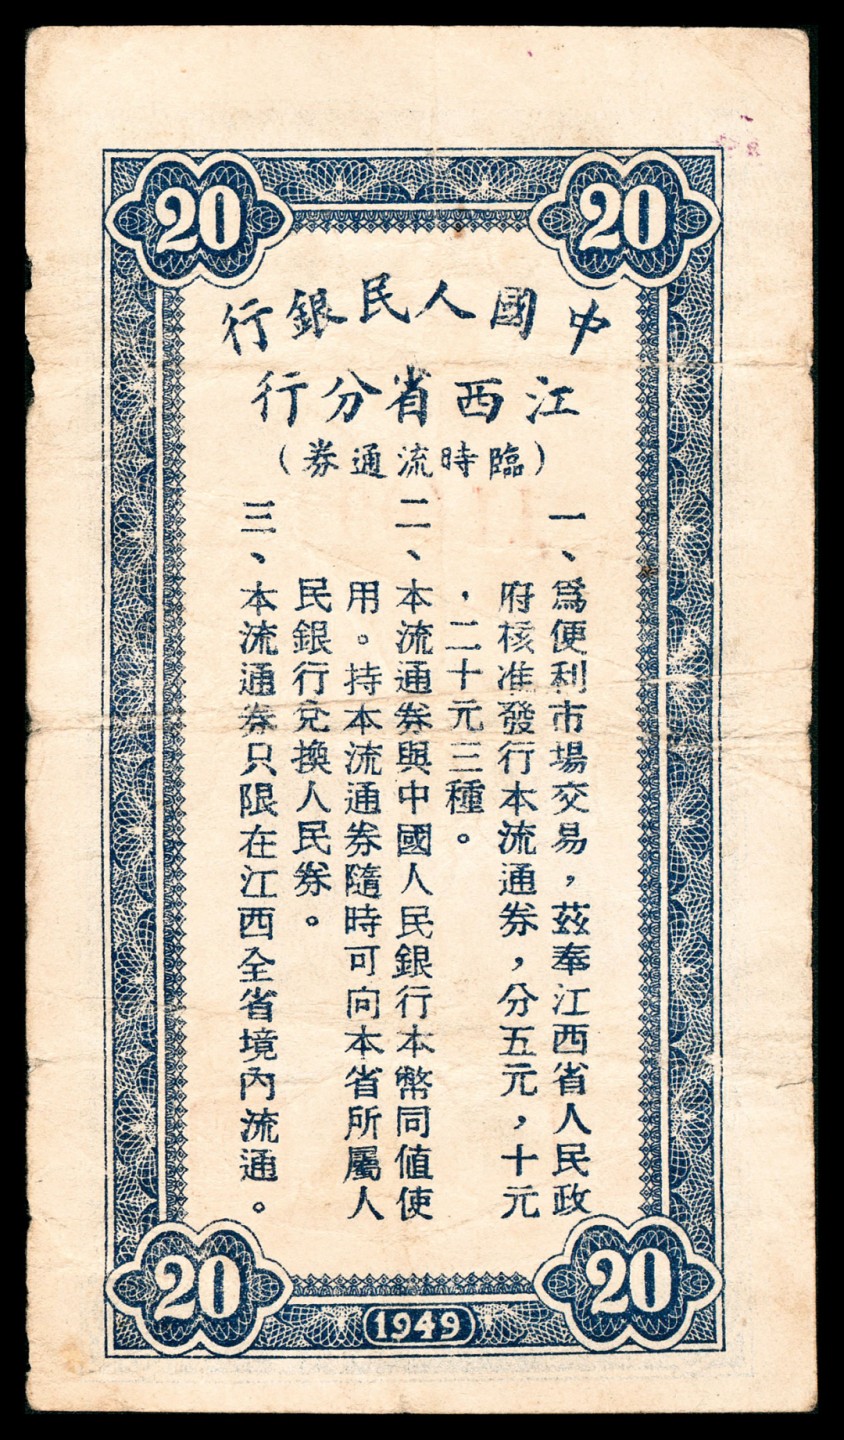 20
20
中國人民銀行
江西省分行
(臨時流通券)
一、爲便利市場交易,茲奉江西省人民政
府核准發行本流通券,分五元,十元
,二十元三種。
二、本流通券與中國人民銀行本幣同值使
用。持本流通券隨時可向本省所屬人
民銀行兌換人民券。
三、本流通券只限在江西全省境內流通。
20
1949
20